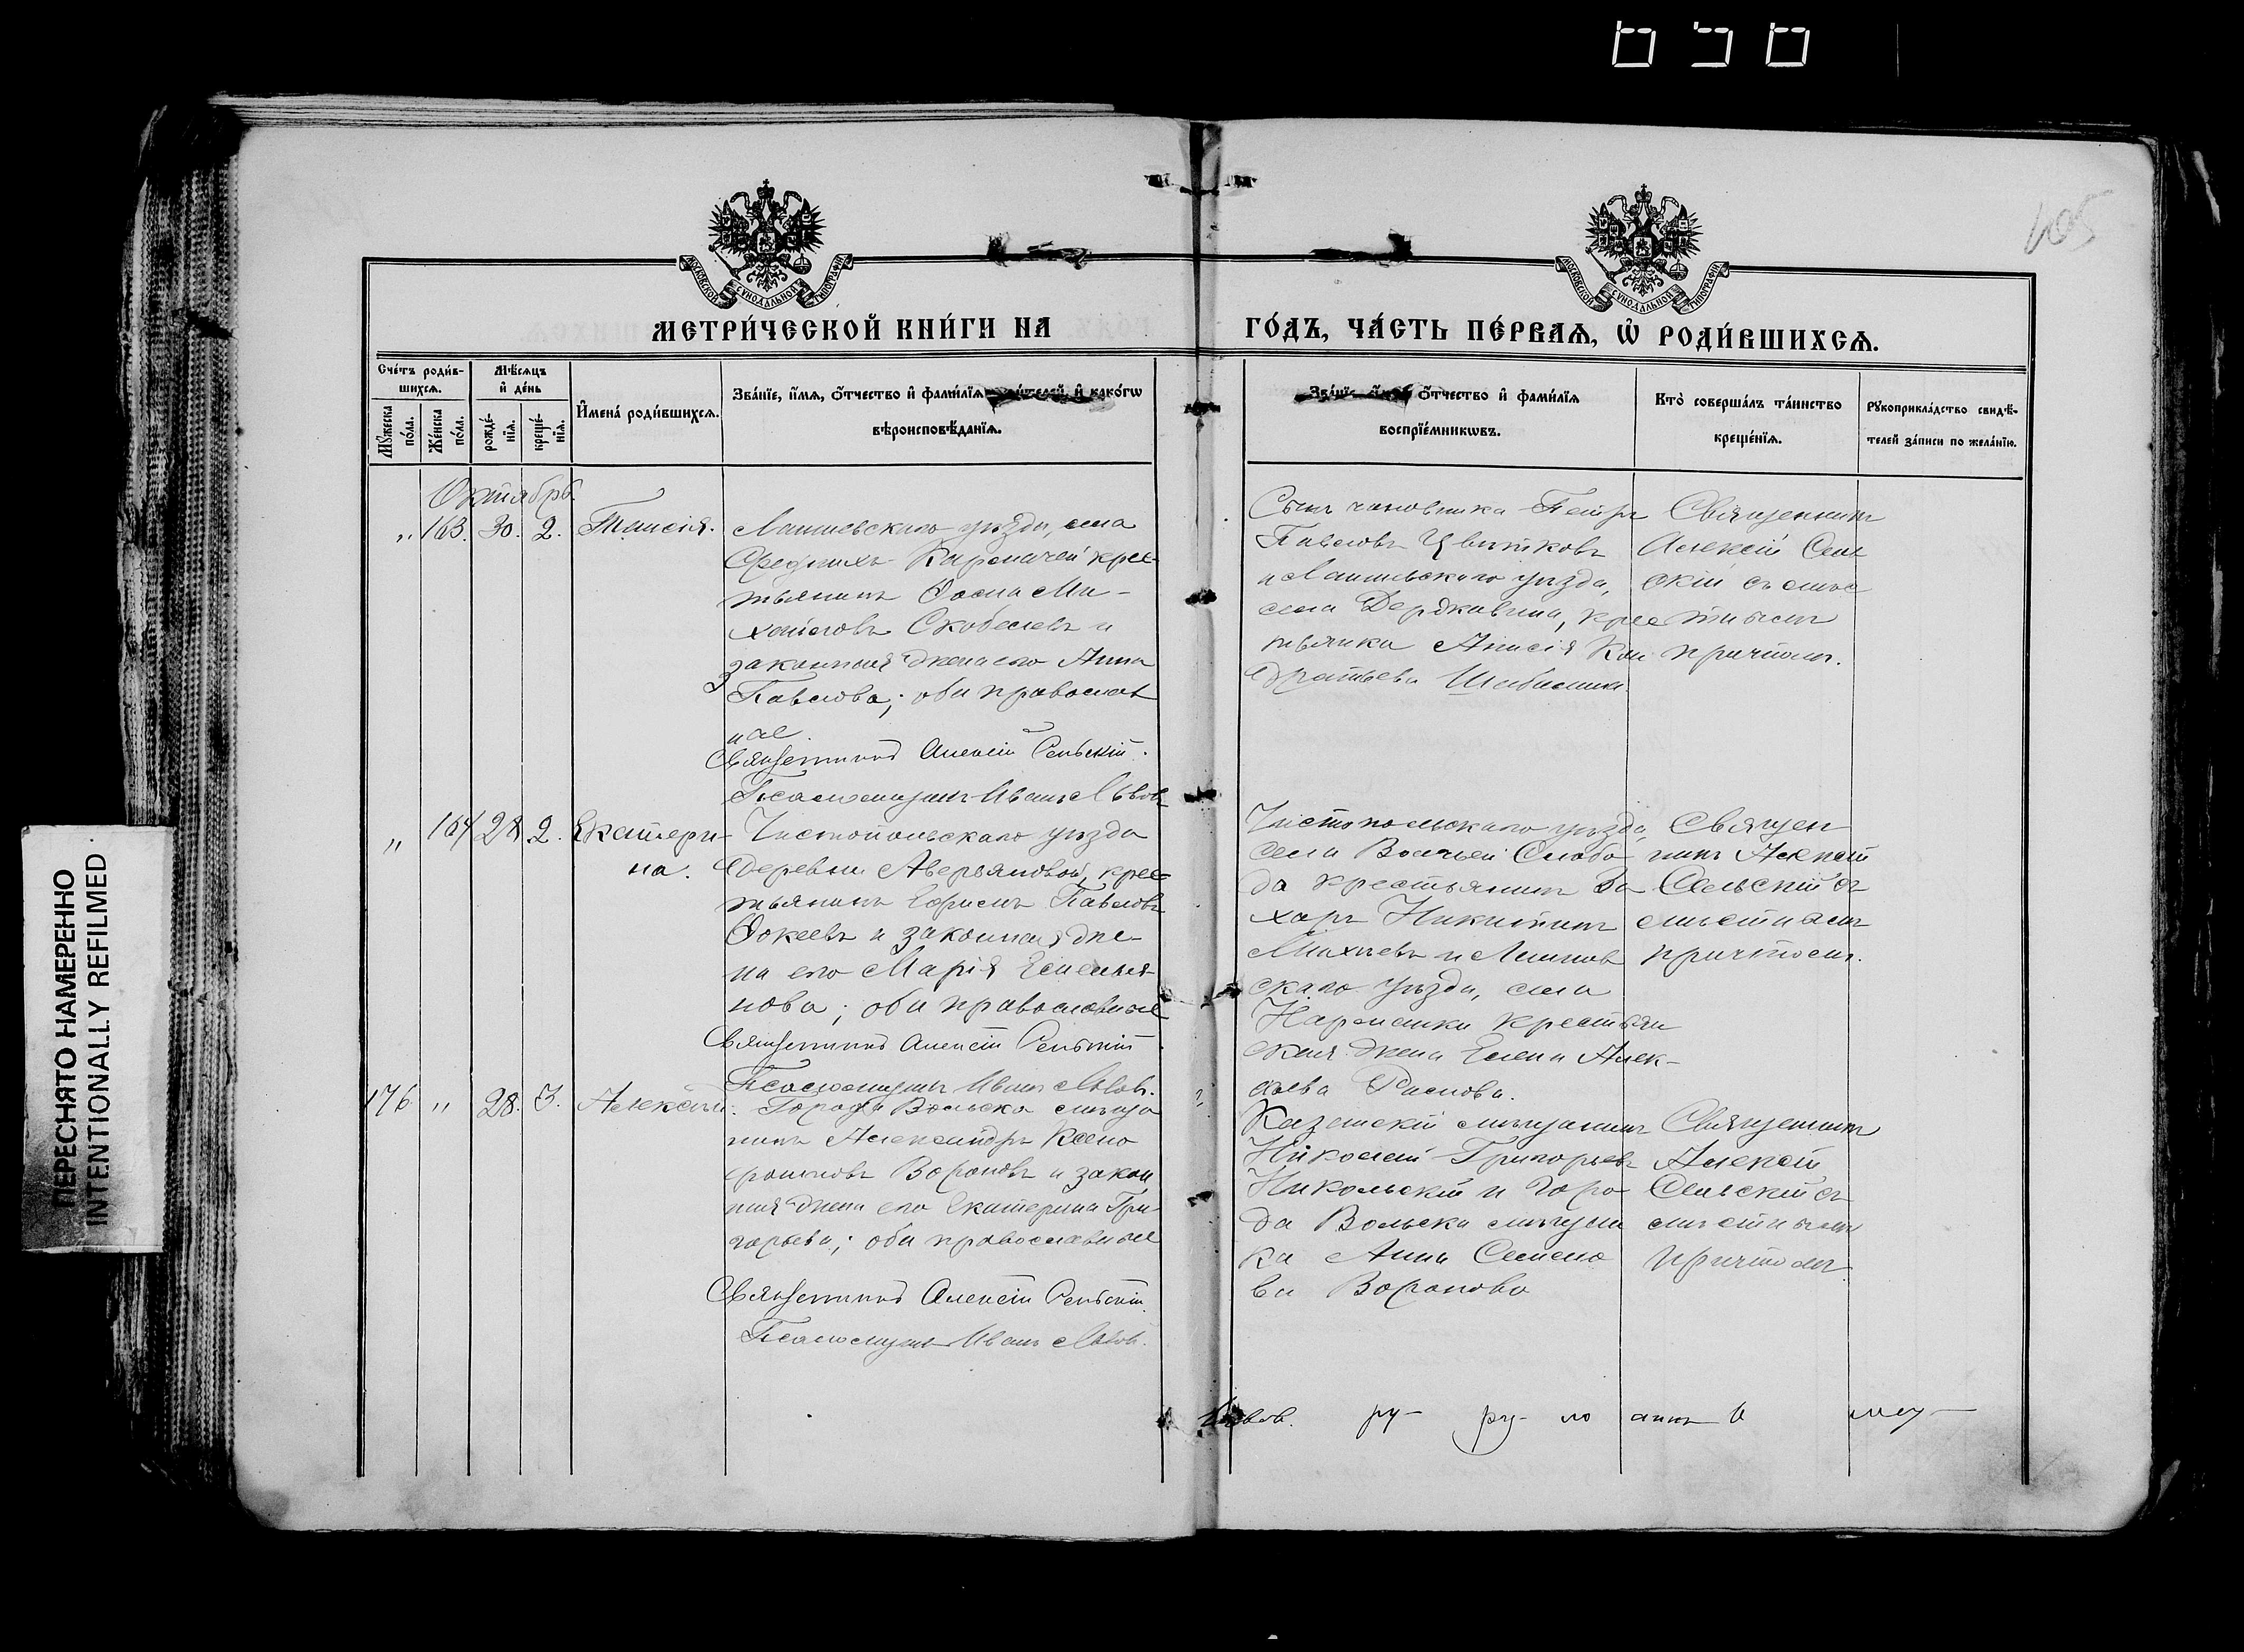 105
МОСКОВСКОЙ СѴНОДАЛЬНОЙ ТИПОГРАФІИ
МОСКОВСКОЙ СѴНОДАЛЬНОЙ ТИПОГРАФІИ
МЕТРИ́ЧЕСКОЙ КНИ́ГИ НА
ГО́ДЪ, ЧА́СТЬ ПЕ́РВАѦ, Ѡ РОДИ́ВШИХСѦ.
Сче́тъ роди́в-
шихсѧ.
Мꙋ́жеска по́ла.
Же́нска по́ла.
Мѣ́сѧцъ
и҆ де́нь
рожде́-
нїѧ.
креще́-
нїѧ.
И҆мена̀ роди́вшихсѧ.
Зва́нїе, и҆́мѧ, о҆́тчество и҆ фами́лїѧ и҆ како́гѡ
вѣроисповѣ́данїѧ.
о҆́тчество и҆ фами́лїѧ
воспрїе́мникѡвъ.
Кто̀ соверша́лъ та́инство
креще́нїѧ.
Рꙋкоприкла́дство свидѣ́-
телей за́писи по жела́нїю.
Октябрь.
„ 163. 30. 2. Таисія.
Лаишевскаго уѣзда, села
Среднихъ Кирменчей крес-
тьянинъ Ѳома Ми-
хаиловъ Скобелевъ и
законная жена его Анна
Павлова; оба православ
ные.
Священникъ Алексій Сельскій.
Псаломщикъ Иванъ Львовъ
Сынъ чиновника Петръ
Павловъ Цвѣтковъ
и Лаишевскаго уѣзда,
села Державина, крес
тьянка Анисія Кон
дратьева
Священникъ
Алексій Сель
скій съ мѣс
тнымъ
причтомъ.
„ 164 28 2. Екатери-
на.
Чистопольскаго уѣзда
деревни Аверьяновой, крес
тьянинъ Ефремъ Павловъ
Ѳокеевъ и законная же-
на его Марія Емелья-
нова; оба православные
Священникъ Алексій Сельскій
Псаломщикъ Иванъ Львовъ.
Чистопольскаго уѣзда,
села Волчьей Слобо
да крестьянинъ За
харъ Никитинъ
Михѣевъ и Лаишев
скаго уѣзда, села
Нармонки крестьян
ская жена Елена Алек-
сѣева
Священ
никъ Алексій
Сельскій съ
мѣстнымъ
причтомъ.
176. „ 28. 3. Алексѣй.
Города Вольска мѣща
нинъ Александръ Ксено
фонтовъ Вороновъ и закон
ная жена его Екатерина Гри-
горьева; оба православные
Священникъ Алексій Сельскій.
Псаломщикъ Иванъ Львовъ.
Казанскій мѣщанинъ
Николай Григорьевъ
Никольскій и горо
да Вольска мѣщан
ка Анна Семено
ва Воронова
Священникъ
Алексій
Сельскій съ
мѣстнымъ
причтомъ
ПЕРЕСНЯТО НАМЕРЕННО
INTENTIONALLY REFILMED